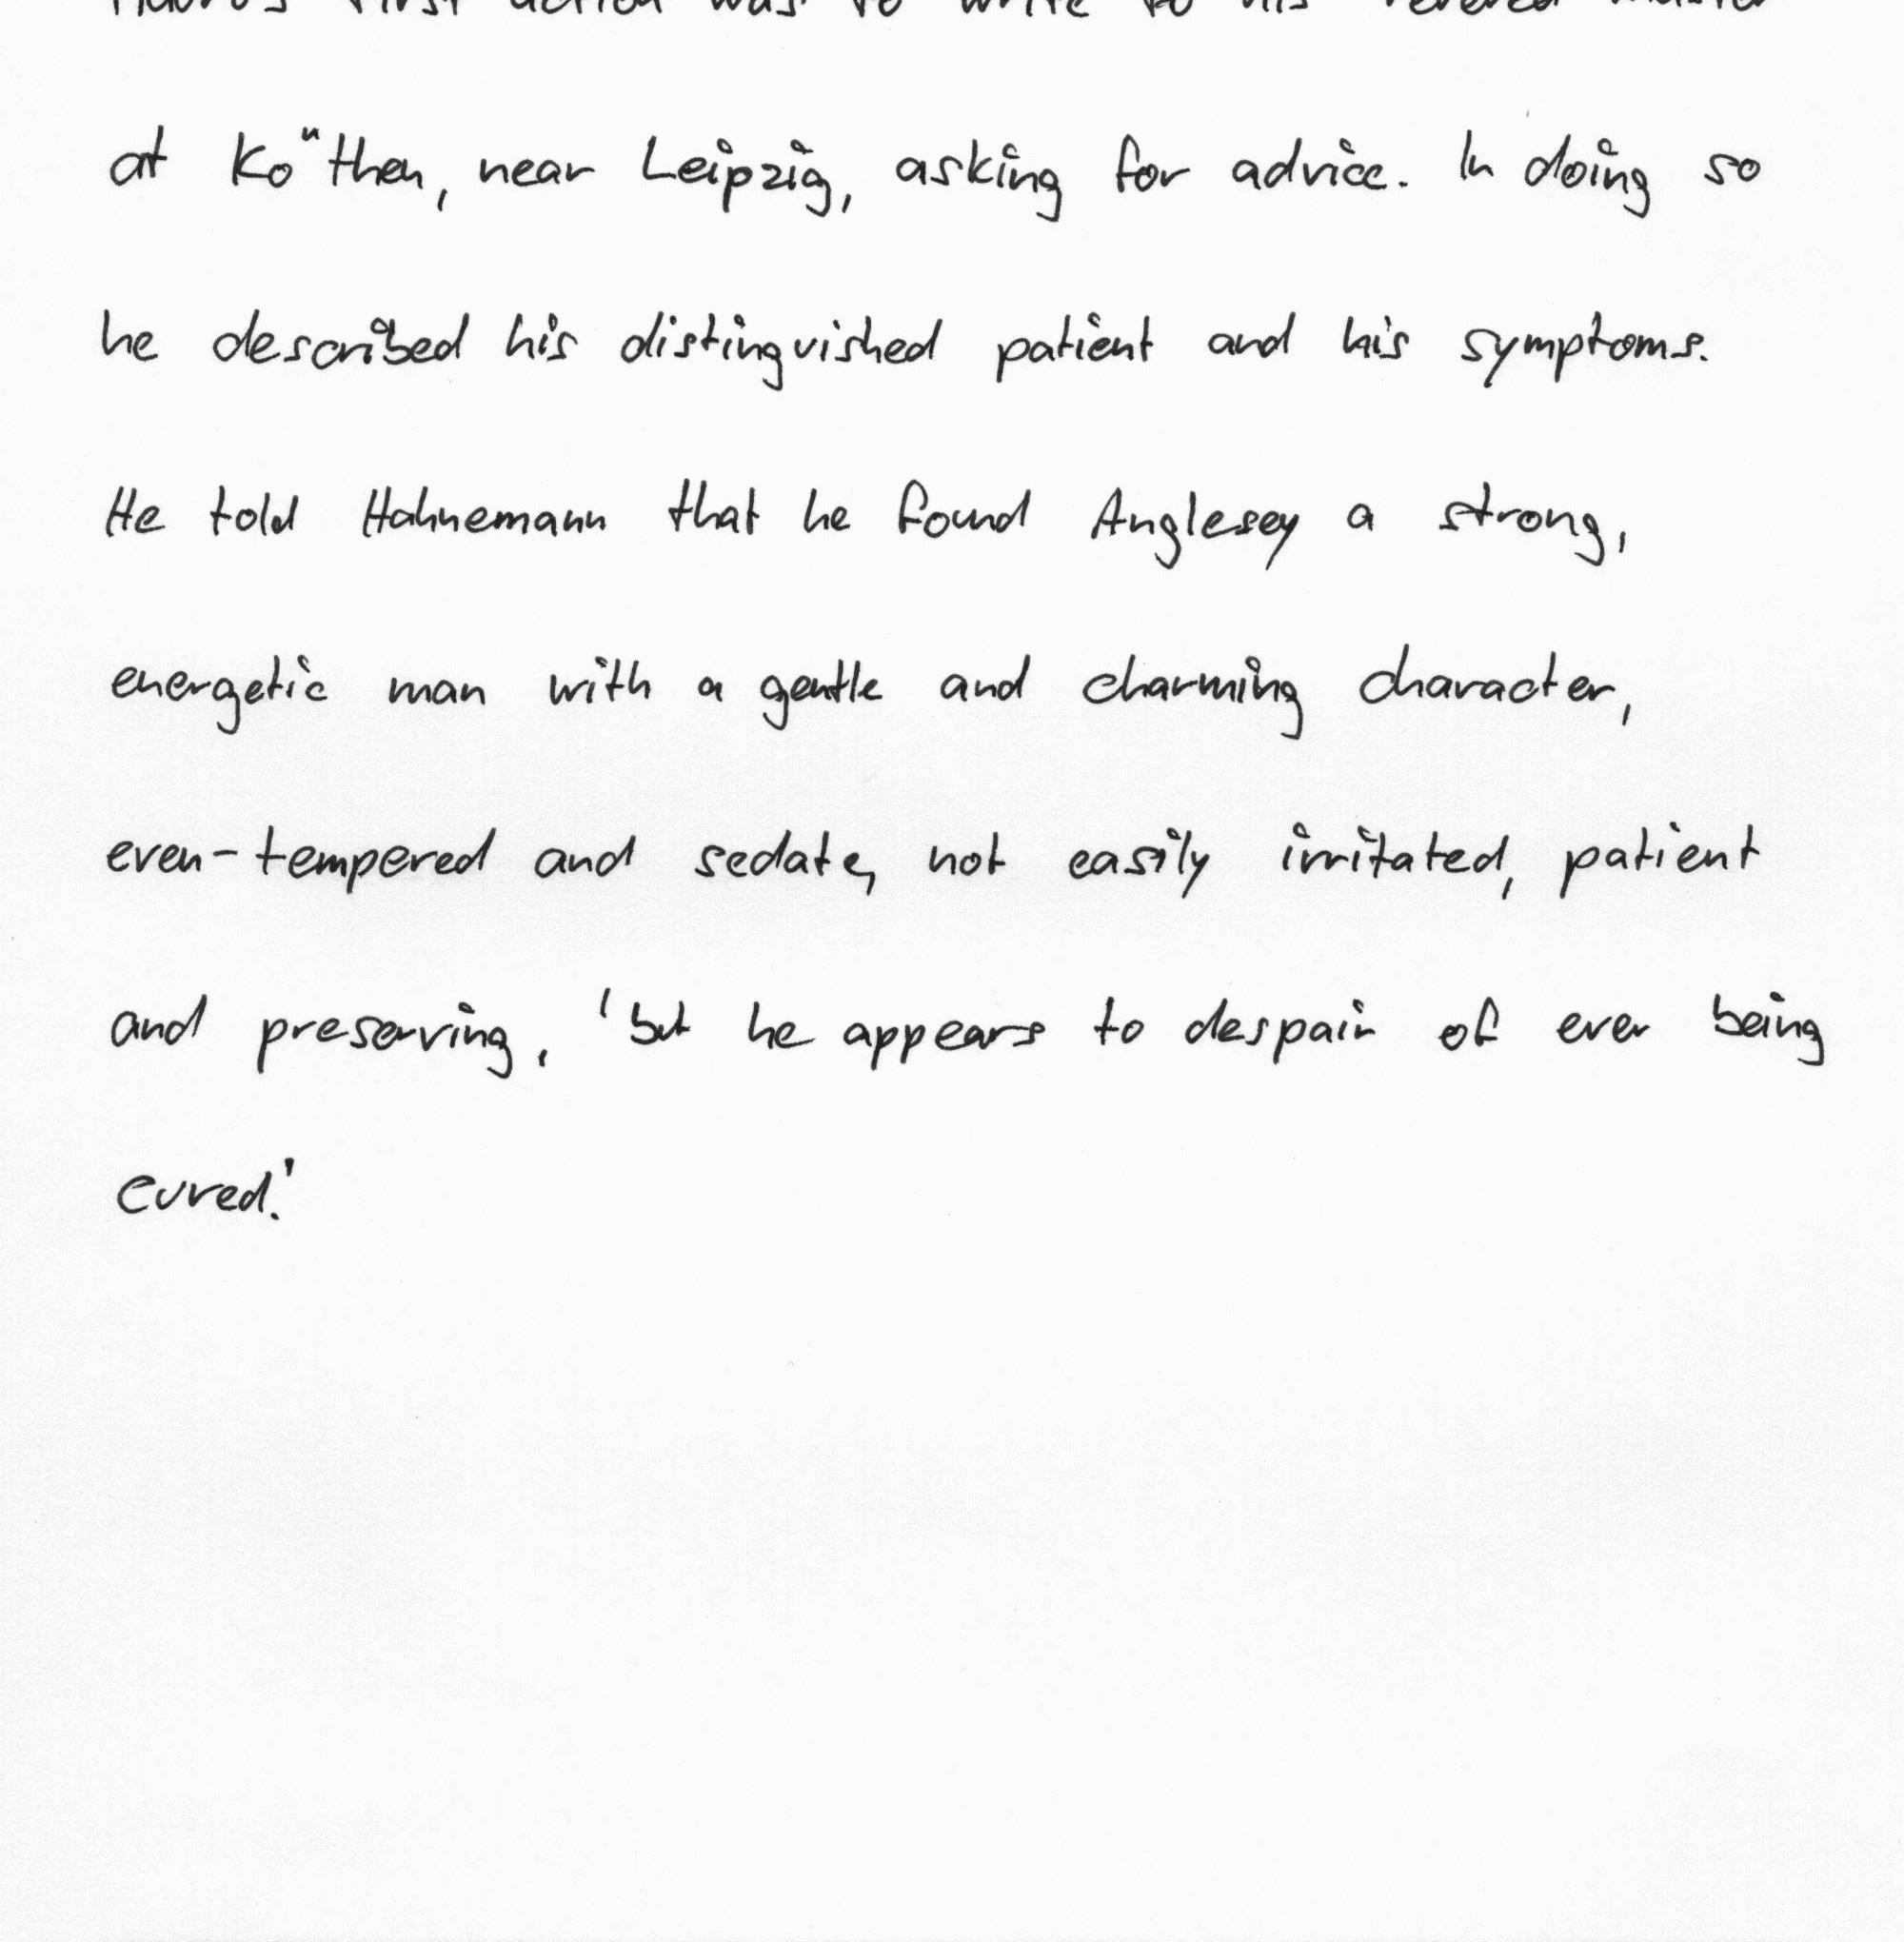 first action was to write to his revered master
at Ko"then, near Leipzig, asking for advice. In doing so
he described his distinguished patient and his symptoms.
He told Hahnemann that he found Anglesey a strong,
energetic man with a gentle and charming character,
even-tempered and sedate, not easily irritated, patient
and preserving, 'but he appears to despair of ever being
cured.'